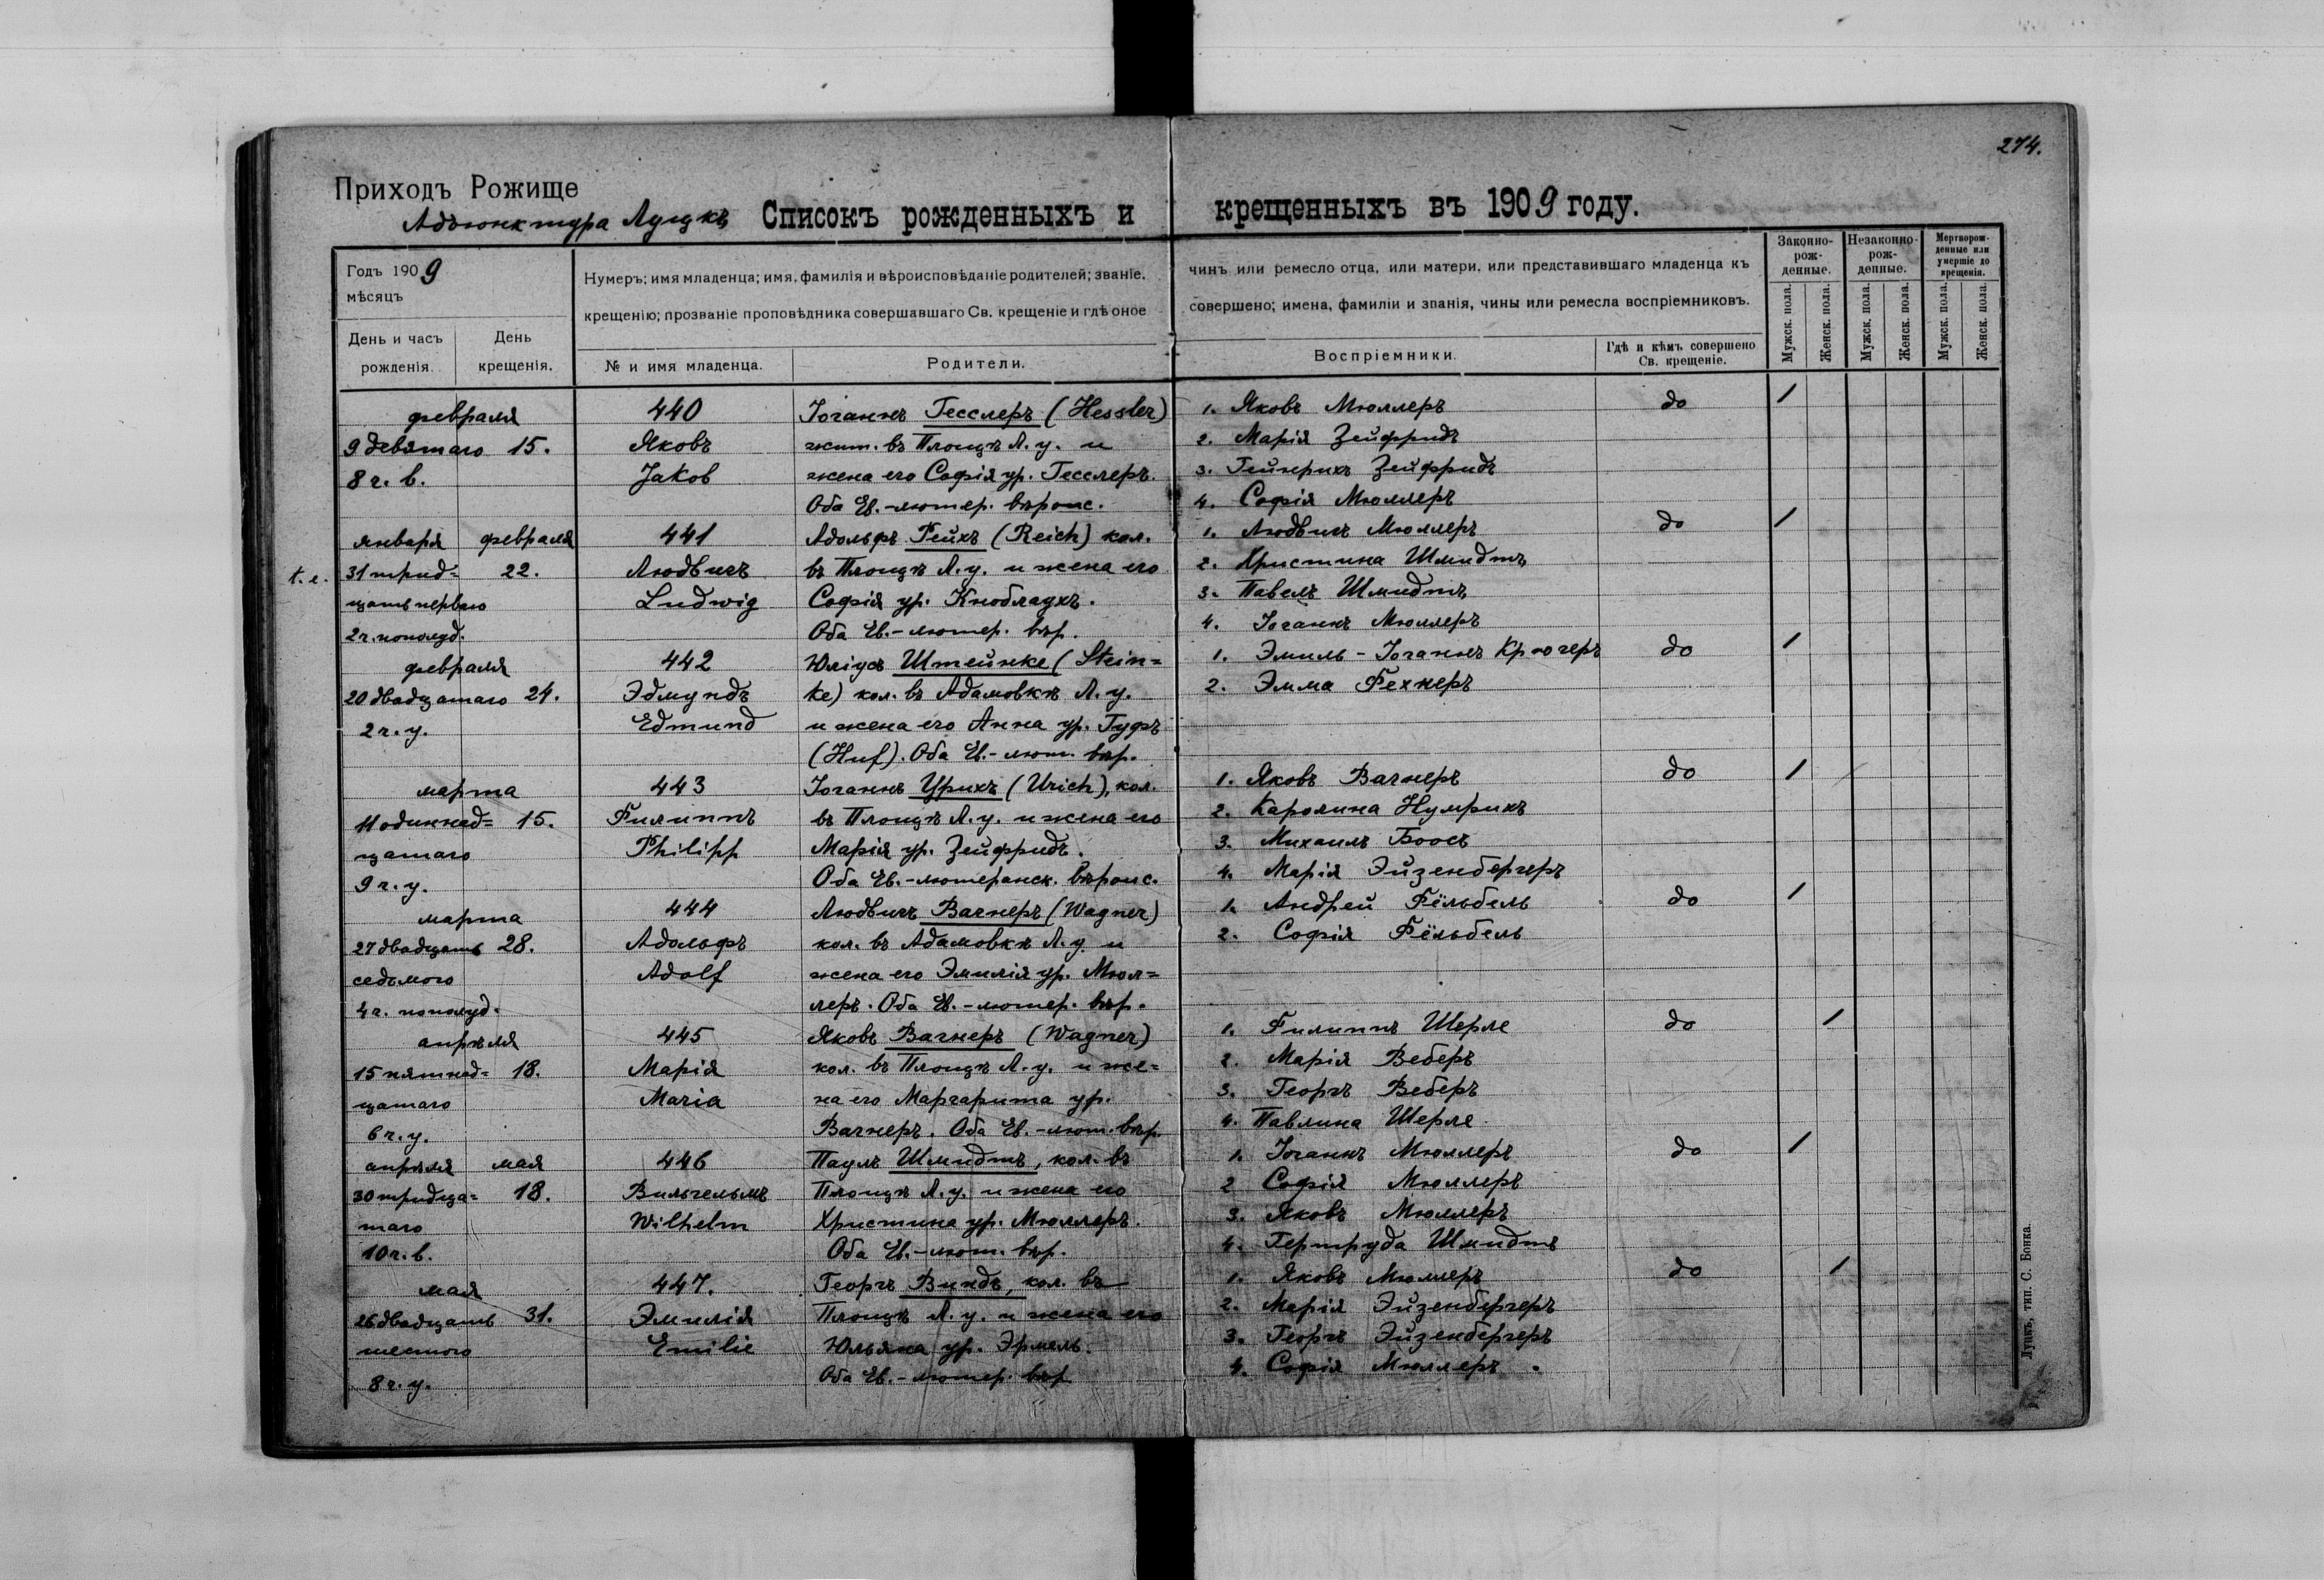 274.
Приходъ Рожище
Адъюнктура Луцкъ Списокъ рожденныхъ и крещенныхъ въ 1909 году.
Годъ 1909
мѣсяцъ
День и часъ рожденія.
День крещенія.
Нумеръ; имя младенца; имя, фамилія и вѣроисповѣданіе родителей; званіе, чинъ или ремесло отца, или матери, или представившаго младенца къ
крещенію; прозваніе проповѣдника совершавшаго Св. крещеніе и гдѣ оное совершено; имена, фамиліи и званія, чины или ремесла воспріемниковъ.
№ и имя младенца.
Родители.
Воспріемники.
Гдѣ и кѣмъ совершено Св. крещеніе.
Законно-рож-денные.
Незаконно-рож-денные.
Мертворож-денные или умершіе до крещенія.
Мужск. пола.
Женск. пола.
Мужск. пола.
Женск. пола.
Мужск. пола.
Женск. пола.
февраля
9 девятаго 15.
8 ч. в.
440
Яковъ
Jakob
Іоганнъ Гесслеръ (Hessler)
жит. въ Плоцкѣ Л. у. и
жена его Софія ур. Гесслеръ.
Оба Ев.-лютер. вѣроис.
1. Яковъ Мюллеръ
2. Марія Зейфридъ
3. Гейнрихъ Зейфридъ
4. Софія Мюллеръ
до
1
января февраля
t. e. 31 трид= 22.
цать перваго
2 ч. пополуд.
441
Людвигъ
Ludwig
Адольфъ Рейхъ (Reich) кол.
въ Плоцкѣ Л. у. и жена его
Софія ур. Кноблаухъ.
Оба Ев.-лютер. вѣр.
1. Людвигъ Мюллеръ
2. Христина Шмидтъ
3. Павелъ Шмидтъ
4. Іоганнъ Мюллеръ
до
1
февраля
20 двадцатаго 24.
2 ч. у.
442
Эдмундъ
Edmund
Юліусъ Штейнке (Stein=
ke) кол. въ Адамовкѣ Л. у.
и жена его Анна ур. Гуфъ
(Huf). Оба Ев.-лют. вѣр.
1. Эмиль-Іоганнъ Крюгеръ
2. Эмма Фехнеръ
до
1
марта
11 одиннад= 15.
цатаго
9 ч. у.
443
Филиппъ
Philipp
Іоганнъ Урихъ (Urich), кол.
въ Плоцкѣ Л. у. и жена его
Марія ур. Зейфридъ.
Оба Ев.-лютеранск. вѣроис.
1. Яковъ Вагнеръ
2. Каролина Нумрихъ
3. Михаилъ Боосъ
4. Марія Эйзенбергеръ
до
1
марта
27 двадцать 28.
седьмого
4 ч. пополуд.
444
Адольфъ
Adolf
Людвигъ Вагнеръ (Wagner)
кол. въ Адамовкѣ Л. у. и
жена его Эмилія ур. Мюл=
леръ. Оба Ев.-лютер. вѣр.
1. Андрей Фёльбель
2. Софія Фёльбель
до
1
апрѣля
15 пятнад= 18.
цатаго
6 ч. у.
445
Марія
Maria
Яковъ Вагнеръ (Wagner)
кол. въ Плоцкѣ Л. у. и же=
на его Маргарита ур.
Вагнеръ. Оба Ев.-лют. вѣр.
1. Филиппъ Шерле
2. Марія Веберъ
3. Георгъ Веберъ
4. Павлина Шерле
до
1
апрѣля мая
30 тридца= 18.
таго
10 ч. в.
446
Вильгельмъ
Wilhelm
Паулъ Шмидтъ, кол. въ
Плоцкѣ Л. у. и жена его
Христина ур. Мюллеръ.
Оба Ев.-лют. вѣр.
1. Іоганнъ Мюллеръ
2 Софія Мюллеръ
3. Яковъ Мюллеръ
4. Гертруда Шмидтъ
до
1
мая
26 двадцать 31.
шестого
8 ч. у.
447.
Эмилія
Emilie
Георгъ Виндъ, кол. въ
Плоцкѣ Л. у. и жена его
Юльяна ур. Эрмель.
Оба Ев.-лютер. вѣр
1. Яковъ Мюллеръ
2. Марія Эйзенбергеръ
3. Георгъ Эйзенбергеръ
4. Софія Мюллеръ.
до
1
Луцкъ, тип. С. Бонка.